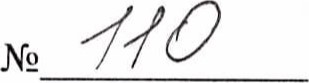 № 110